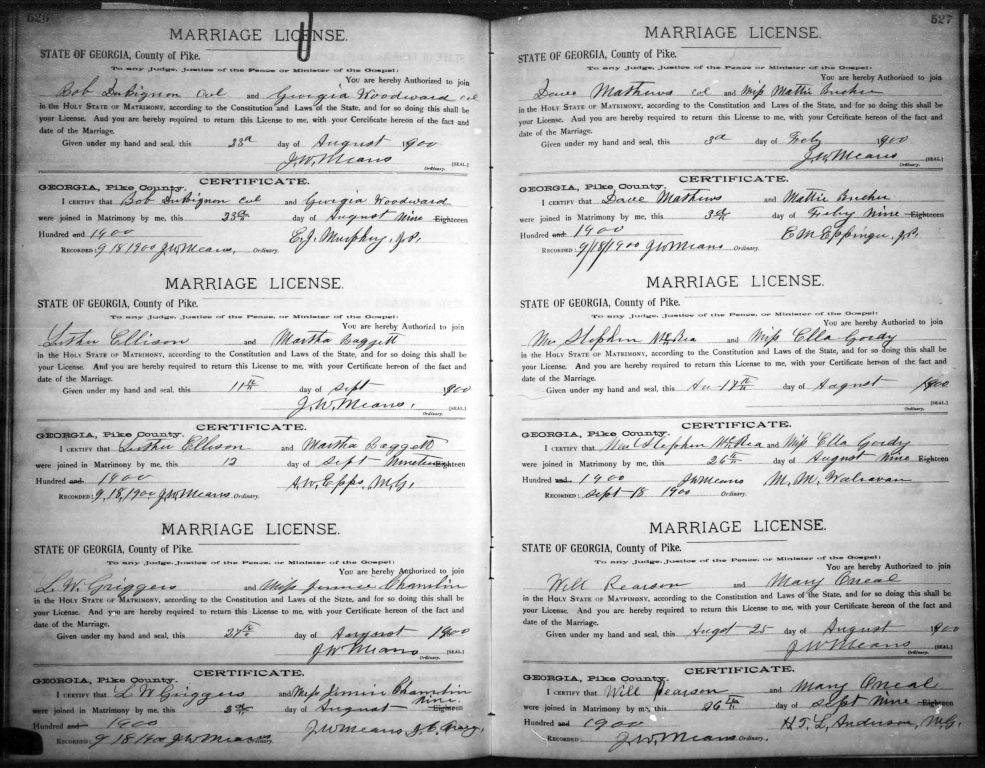 526
MARRIAGE LICENSE.
STATE OF GEORGIA, County of Pike.
To any Judge, Justice of the Peace or Minister of the Gospel:
You are hereby Authorized to join
Bob Dubignon Col and Georgia Woodward Col
in the HOLY STATE OF MATRIMONY, according to the Constitution and Laws of the State, and for so doing this shall be
your License. And you are hereby required to return this License to me, with your Certificate hereon of the fact and
date of the Marriage.
Given under my hand and seal, this 23d day of August 1900
J.W. Means [SEAL.]
Ordinary.
CERTIFICATE.
GEORGIA, Pike County.
I CERTIFY that Bob Dubignon Col and Georgia Woodward
were joined in Matrimony by me, this 23d day of August Nine Eighteen
Hundred and 1900 E.J. Murphey, J.P.
RECORDED: 9 18 1900 J.W. Means, Ordinary.
MARRIAGE LICENSE.
STATE OF GEORGIA, County of Pike.
To any Judge, Justice of the Peace, or Minister of the Gospel:
You are hereby Authorized to join
Luther Ellison and Martha Baggett
in the HOLY STATE OF MATRIMONY, according to the Constitution and Laws of the State, and for so doing this shall be
your License. And you are hereby required to return this License to me, with your Certificate hereon of the fact and
date of the Marriage.
Given under my hand and seal, this 11th day of Sept 1900
J.W. Means. [SEAL]
Ordinary.
CERTIFICATE.
GEORGIA, Pike County.
I CERTIFY that Luther Ellison and Martha Baggett
were joined in Matrimony by me, this 12 day of Sept Nineteen Eighteen
Hundred and 1900 A.W. Epps, M.G.
RECORDED: 9, 18, 1900 J.W. Means Ordinary.
MARRIAGE LICENSE.
STATE OF GEORGIA, County of Pike.
To any Judge, Justice of the Peace, or Minister of the Gospel:
You are hereby Authorized to join
L.W. Griggers and Miss Jimmie Chamlin
in the HOLY STATE OF MATRIMONY, according to the Constitution and Laws of the State, and for so doing this shall be
your License. And you are hereby required to return this License to me, with your Certificate hereon of the fact and
date of the Marriage.
Given under my hand and seal, this 27th day of August 1900
J.W. Means [SEAL]
Ordinary.
CERTIFICATE.
GEORGIA, Pike County.
I CERTIFY that L W Griggers and Miss Jimmie Chamlin
were joined in Matrimony by me, this day of August Nine Eighteen
Hundred and 1900 J.W. Means
RECORDED: 9 18 1900 J.W. Means Ordinary.
527
MARRIAGE LICENSE.
STATE OF GEORGIA, County of Pike.
To any Judge, Justice of the Peace, or Minister of the Gospel:
You are hereby Authorized to join
Dave Mathews Col and Miss Mattie
in the HOLY STATE OF MATRIMONY, according to the Constitution and Laws of the State, and for so doing this shall be
your License. And you are hereby required to return this License to me, with your Certificate hereon of the fact and
date of the Marriage.
Given under my hand and seal, this 3d day of Feby 1900
J.W. Means [SEAL]
Ordinary.
CERTIFICATE.
GEORGIA, Pike County.
I CERTIFY that Dave Mathews and Mattie
were joined in Matrimony by me, this 3d day of Feby Nine Eighteen
Hundred and 1900 E M Eppinger, J.P.
RECORDED: 9/18/1900 J.W. Means Ordinary.
MARRIAGE LICENSE.
STATE OF GEORGIA, County of Pike.
To any Judge, Justice of the Peace, or Minister of the Gospel:
You are hereby Authorized to join
Mr Stephen McRea and Miss Ella Gordy
in the HOLY STATE OF MATRIMONY, according to the Constitution and Laws of the State, and for so doing this shall be
your License. And you are hereby required to return this License to me, with your Certificate hereon of the fact and
date of the Marriage.
Given under my hand and seal, this 17th day of August 1900
[SEAL]
Ordinary.
CERTIFICATE.
GEORGIA, Pike County.
I CERTIFY that Mr Stephen McRea and Miss Ella Gordy
were joined in Matrimony by me, this 26th day of August Nine Eighteen
Hundred and 1900 J.W. Means M. M. Walraven
RECORDED: Sept 18 1900 Ordinary.
MARRIAGE LICENSE.
STATE OF GEORGIA, County of Pike.
To any Judge, Justice of the Peace, or Minister of the Gospel:
You are hereby Authorized to join
Will Pearson and Mary Oneal
in the HOLY STATE OF MATRIMONY, according to the Constitution and Laws of the State, and for so doing this shall be
your License. And you are hereby required to return this License to me, with your Certificate hereon of the fact and
date of the Marriage.
Given under my hand and seal, this Augst 25 day of August 1900
J.W. Means [SEAL]
Ordinary.
CERTIFICATE.
GEORGIA, Pike County.
I CERTIFY that Will Pearson and Mary Oneal
were joined in Matrimony by me, this 26th day of Sept Nine Eighteen
Hundred and 1900 H.T.L. Anderson, M.G.
RECORDED: J.W. Means Ordinary.